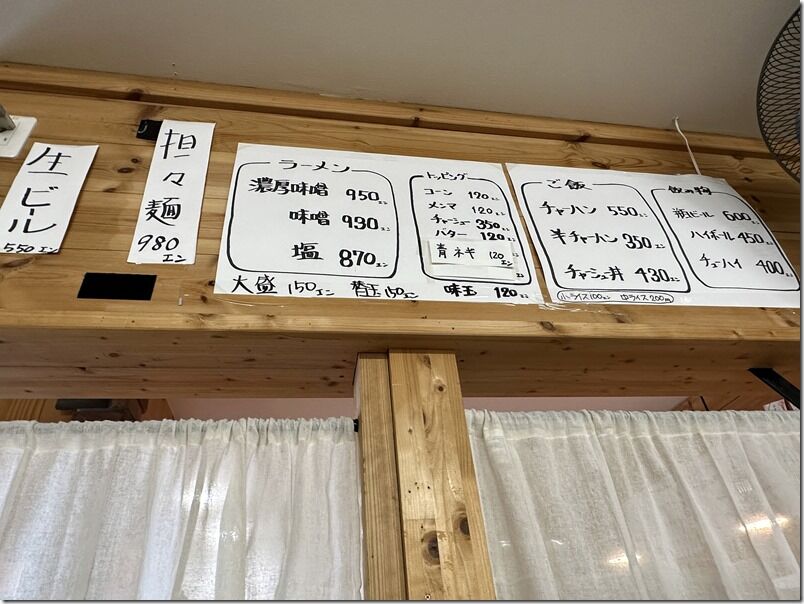 生ビール
550エン
担々麺
980エン
ラーメン
濃厚味噌 950エン
味噌 930エン
塩 870エン
大盛 150エン 替玉 150エン 味玉 120エン
トッピング
コーン 120エン
メンマ 120エン
チャーシュー 350エン
バター 120エン
青ネギ 120エン
ご飯
チャーハン 550エン
半チャーハン 350エン
チャーシュー丼 430エン
小ライス100エン 中ライス200円
飲み物
瓶ビール 600エン
ハイボール 450エン
チューハイ 400エン